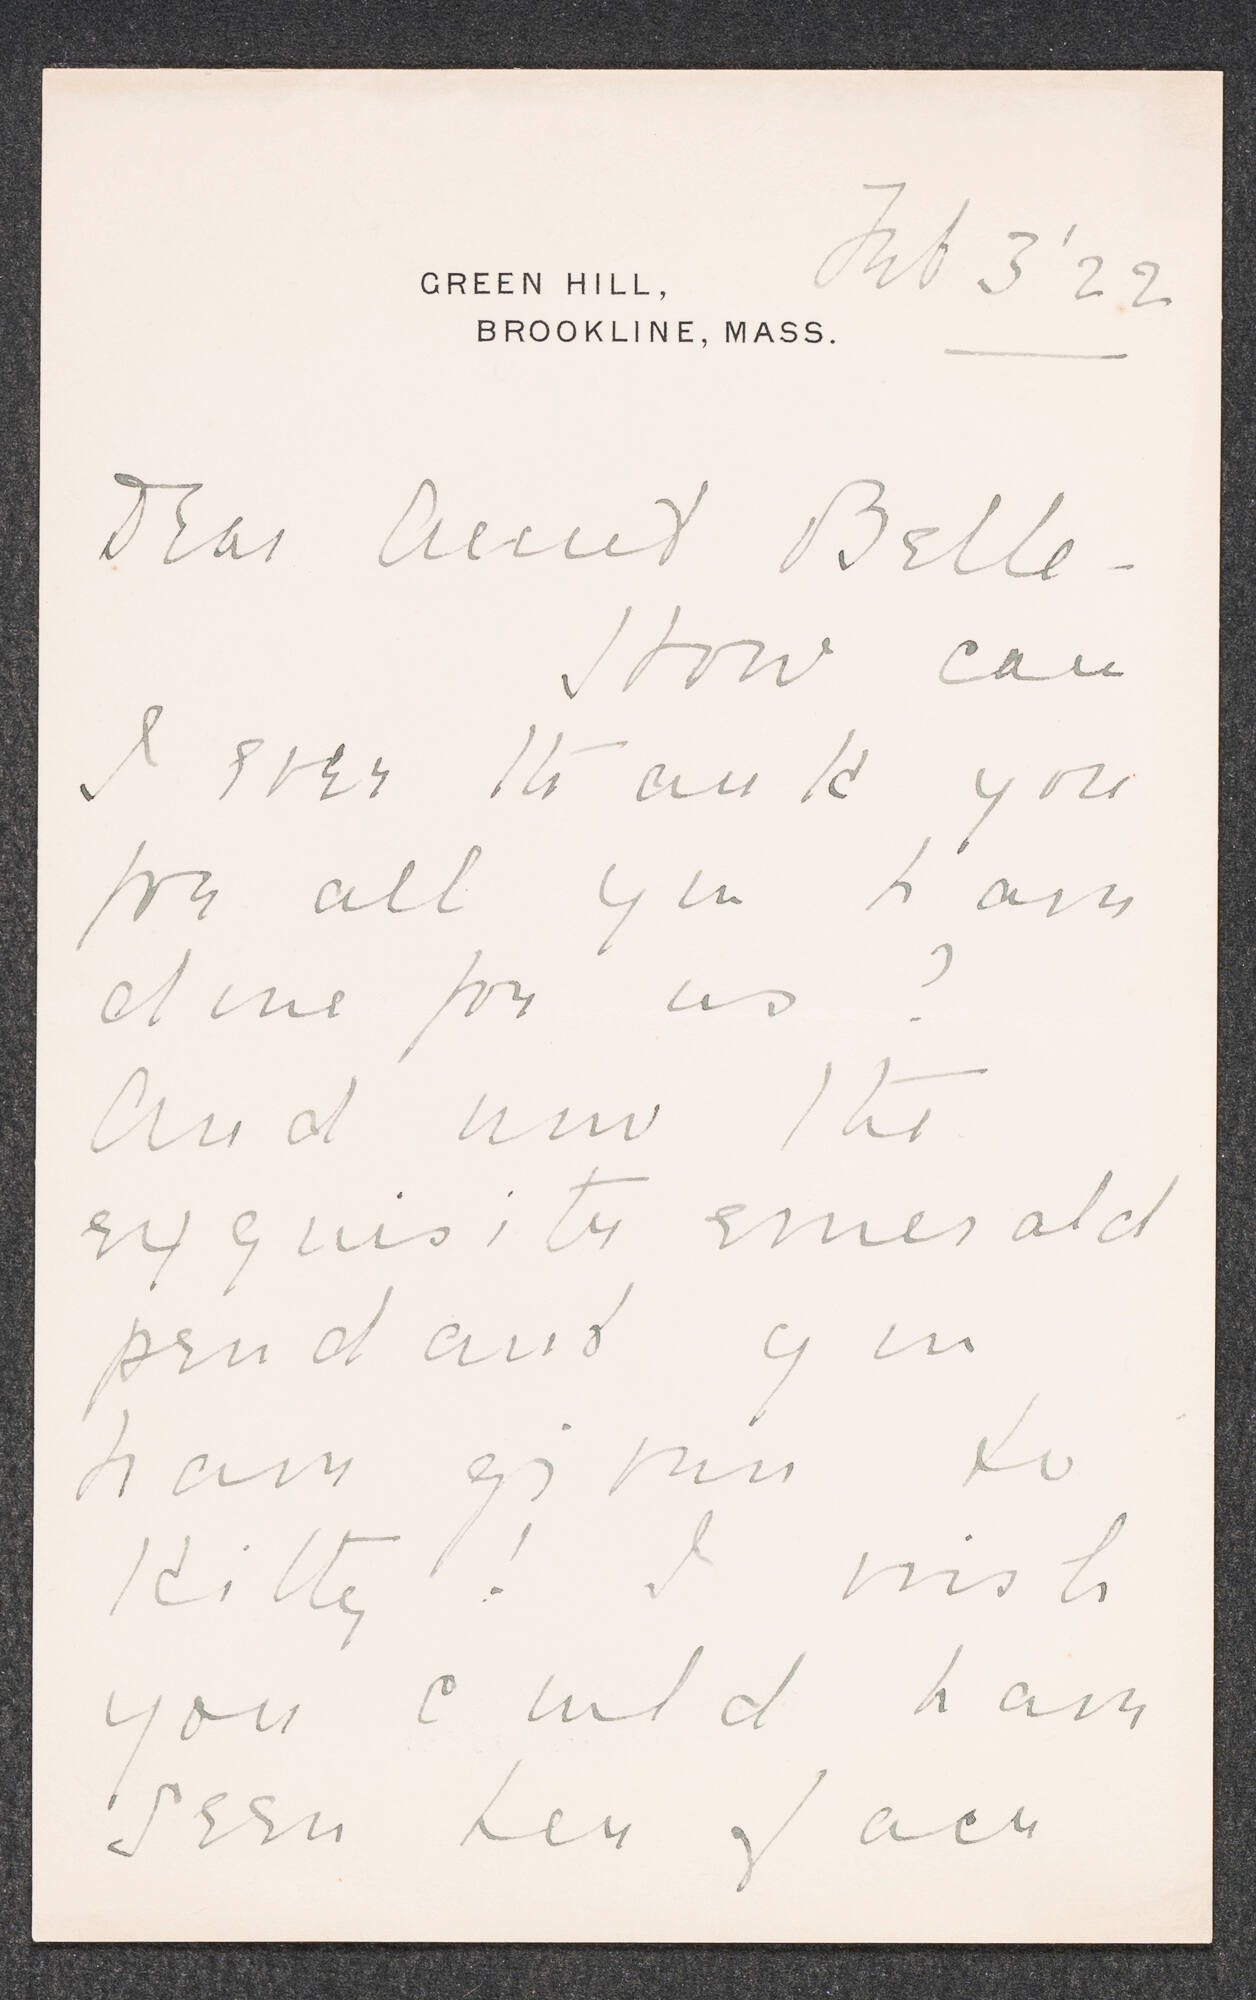 Feb 3 '22
GREEN HILL,
BROOKLINE, MASS.
Dear Aunt Belle -
How can
I ever thank you
for all you have
done for us?
And now the
exquisite emerald
pendant you
have given to
Kitty! I wish
you could have
seen her face